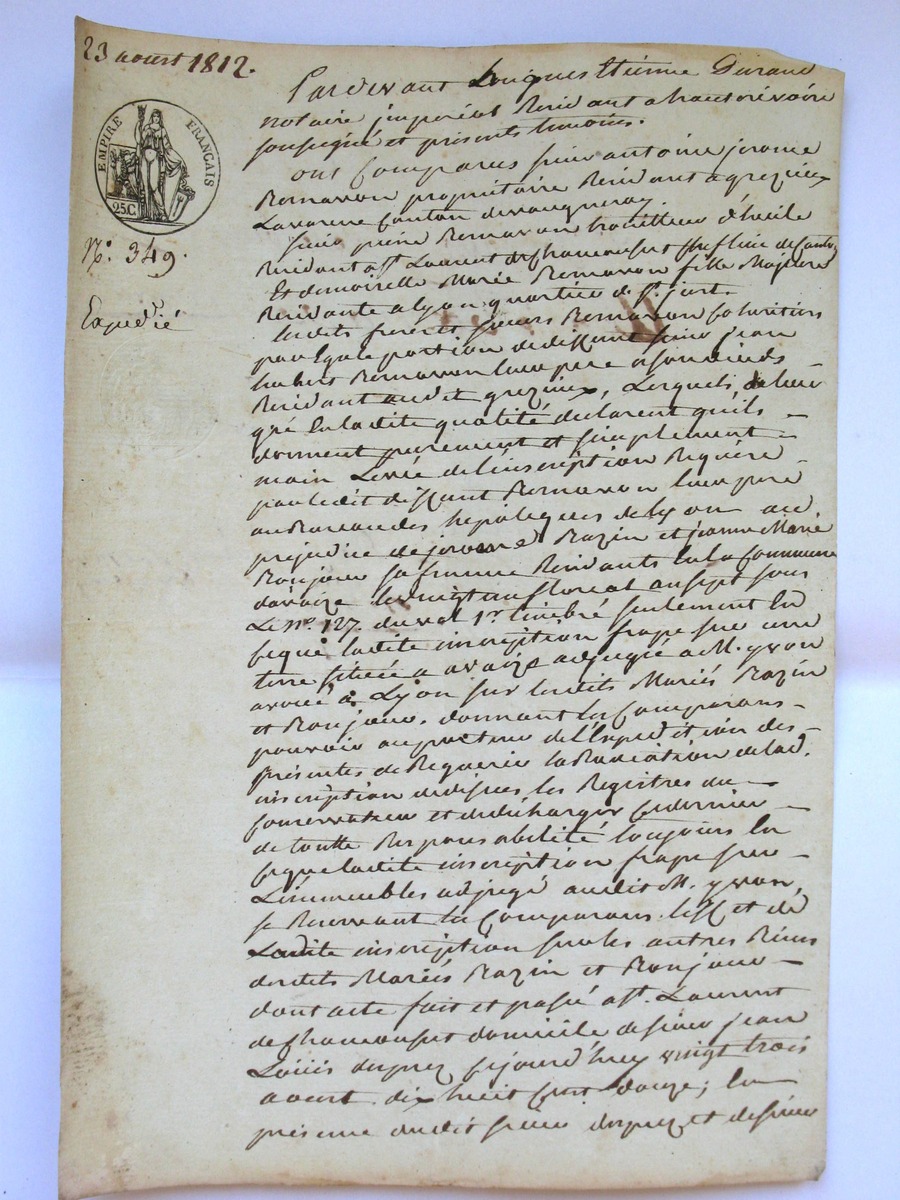 23 aoust 1812.
EMPIRE FRANÇAIS
25.C
No. 349.
Expedié
Pardevant hugues Etienne Durand
notaire jmperial Residant a hauterivoire
soussigné et presents temoins.
ont Comparus sieur antoine jerome
Romaron proprietaire Residant a grezieux
Lavarenne Canton devaugneray
sieur pierre Romaron
Residant a St. Laurent dechamousset
Et demoiselle Marie Romaron fille Majeure
Residante a Lyon quartier de St. just.
Lesdits freres et soeurs Romaron
par Egale portion de deffunt sieur jean
hubert Romaron leur pere a son deceds
Residant audit grezieux, Lesquels de leur
gré En ladite qualité declarent qu'ils
donnent purement et simplement
main Levée de l'inscription Requise
par ledit deffunt Romaron leur pere
au Bureau des hepoteques de Lyon au
prejudice de jerome Razin et jeanne Marie
Bonjour sa femme Residants En la Commune
davaize le vingt un floreal an sept sous
Le no. 127. du vol 1er. timbré seulement En
ce que ladite inscription frape sur une
terre située a avaize adjugée a M. yvon
avoué a Lyon sur lesdits Mariés Razin
et Bonjour. donnant les Comparans
pouvoir au porteur de l'Expedition des
presentes de Requerir la Radiation de lad.
inscription de dessus les Registres du
Conservateur et de decharger ce dernier
de toutte Responsabilité toujours En
ce que ladite inscription frape sur
L'immeubles adjugé audit M. yvon,
se Reservant les Comparans et de
Ladite inscription sur les autres Biens
desdits Mariés Razin et Bonjour
dont acte fait et passé a St. Laurent
de chamousset domicile de sieur jean
Louis dupuy cejourd'huy vingt trois
aoust dix huit Cent douze; En
presence dudit sieur dupuy et de sieur